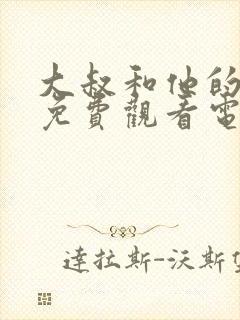 大叔和他的
免費觀看電
達拉斯-沃斯堡